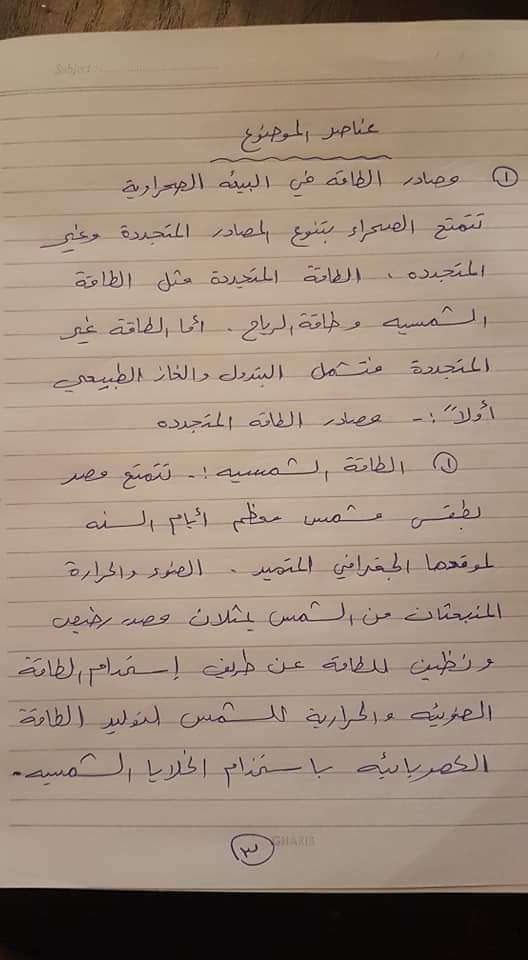 Subject:
عناصر الموضوع
١ مصادر الطاقة في البيئه الصحراوية
تتمتع الصحراء بتنوع المصادر المتجددة وغير
المتجدده . الطاقة المتجددة مثل الطاقة
الشمسيه وطاقة الرياح . أما الطاقة غير
المتجددة فتشمل البترول والغاز الطبيعي
أولاً :- مصادر الطاقه المتجدده
١ الطاقة الشمسيه :- تتمتع مصر
بطقس مشمس معظم أيام السنه
لموقعها الجغرافي المتميز . الضوء والحرارة
المنبعثان من الشمس يمثلان مصدر رخيص
ونظيف للطاقة عن طريق إستخدام الطاقة
الضوئيه والحرارية للشمس لتوليد الطاقة
الكهربائيه باستخدام الخلايا الشمسيه .
GHARIB
٣